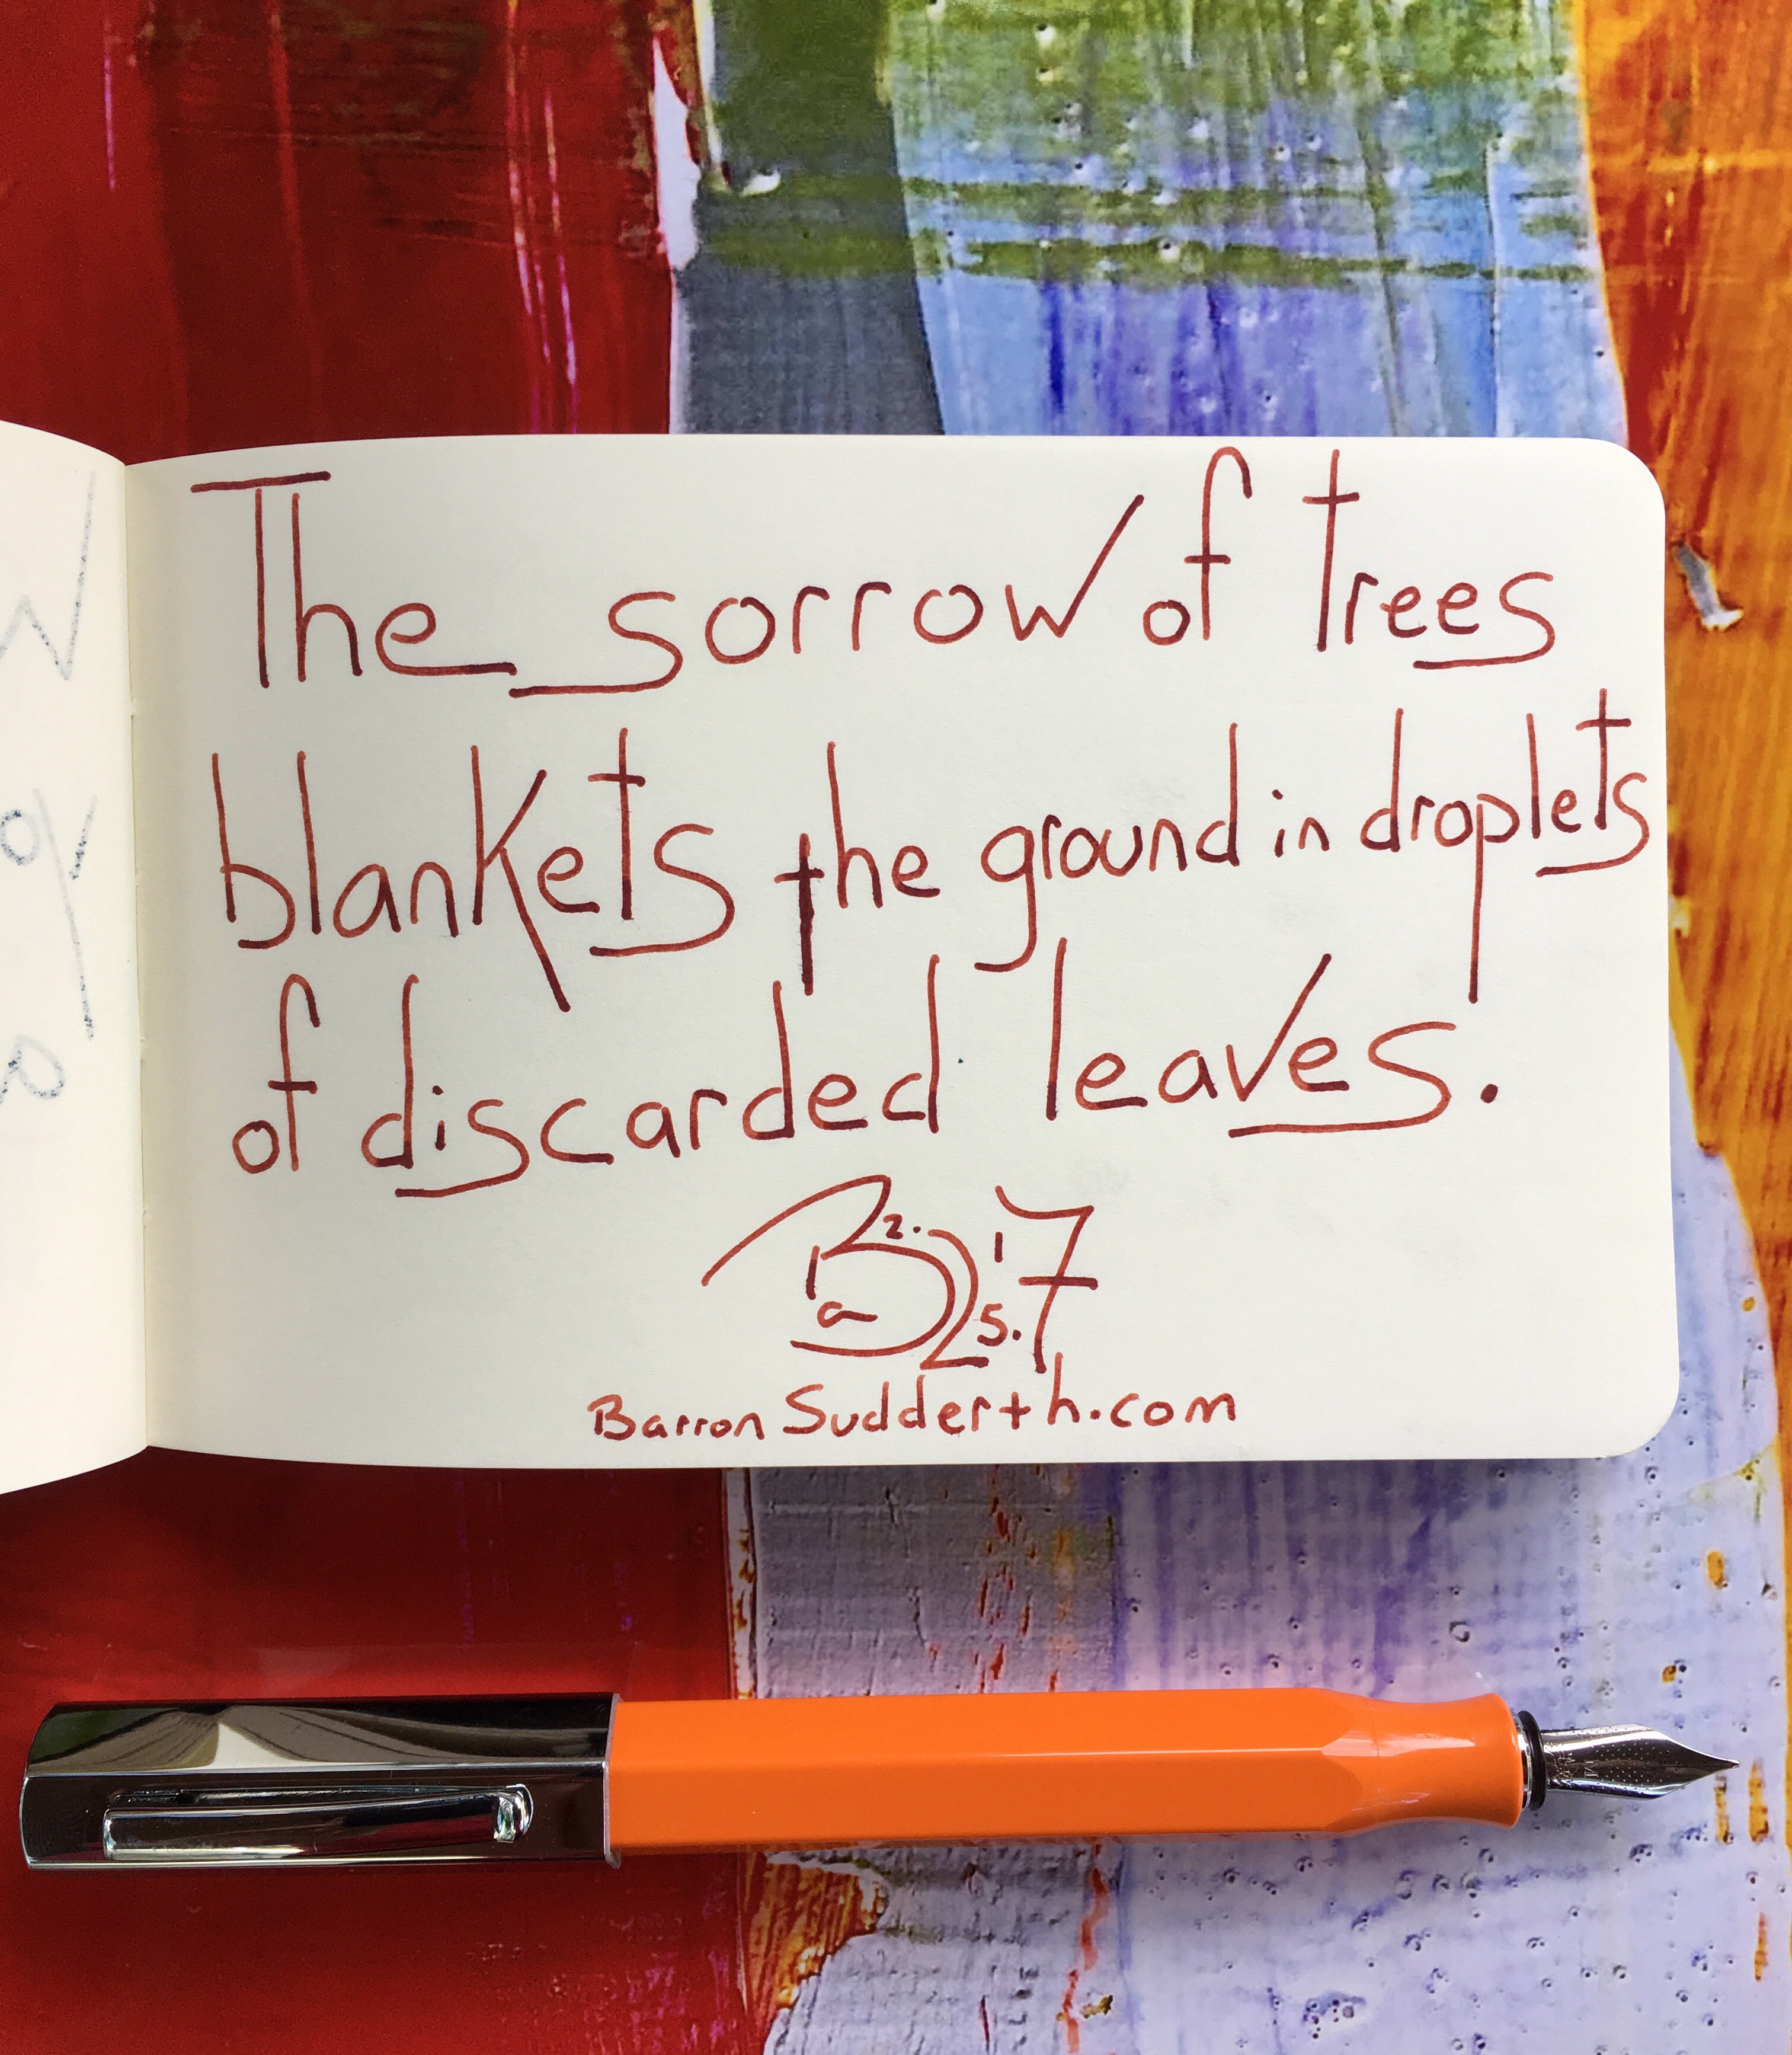 The sorrow of trees
blankets the ground in droplets
of discarded leaves.
BarronSudderth.com